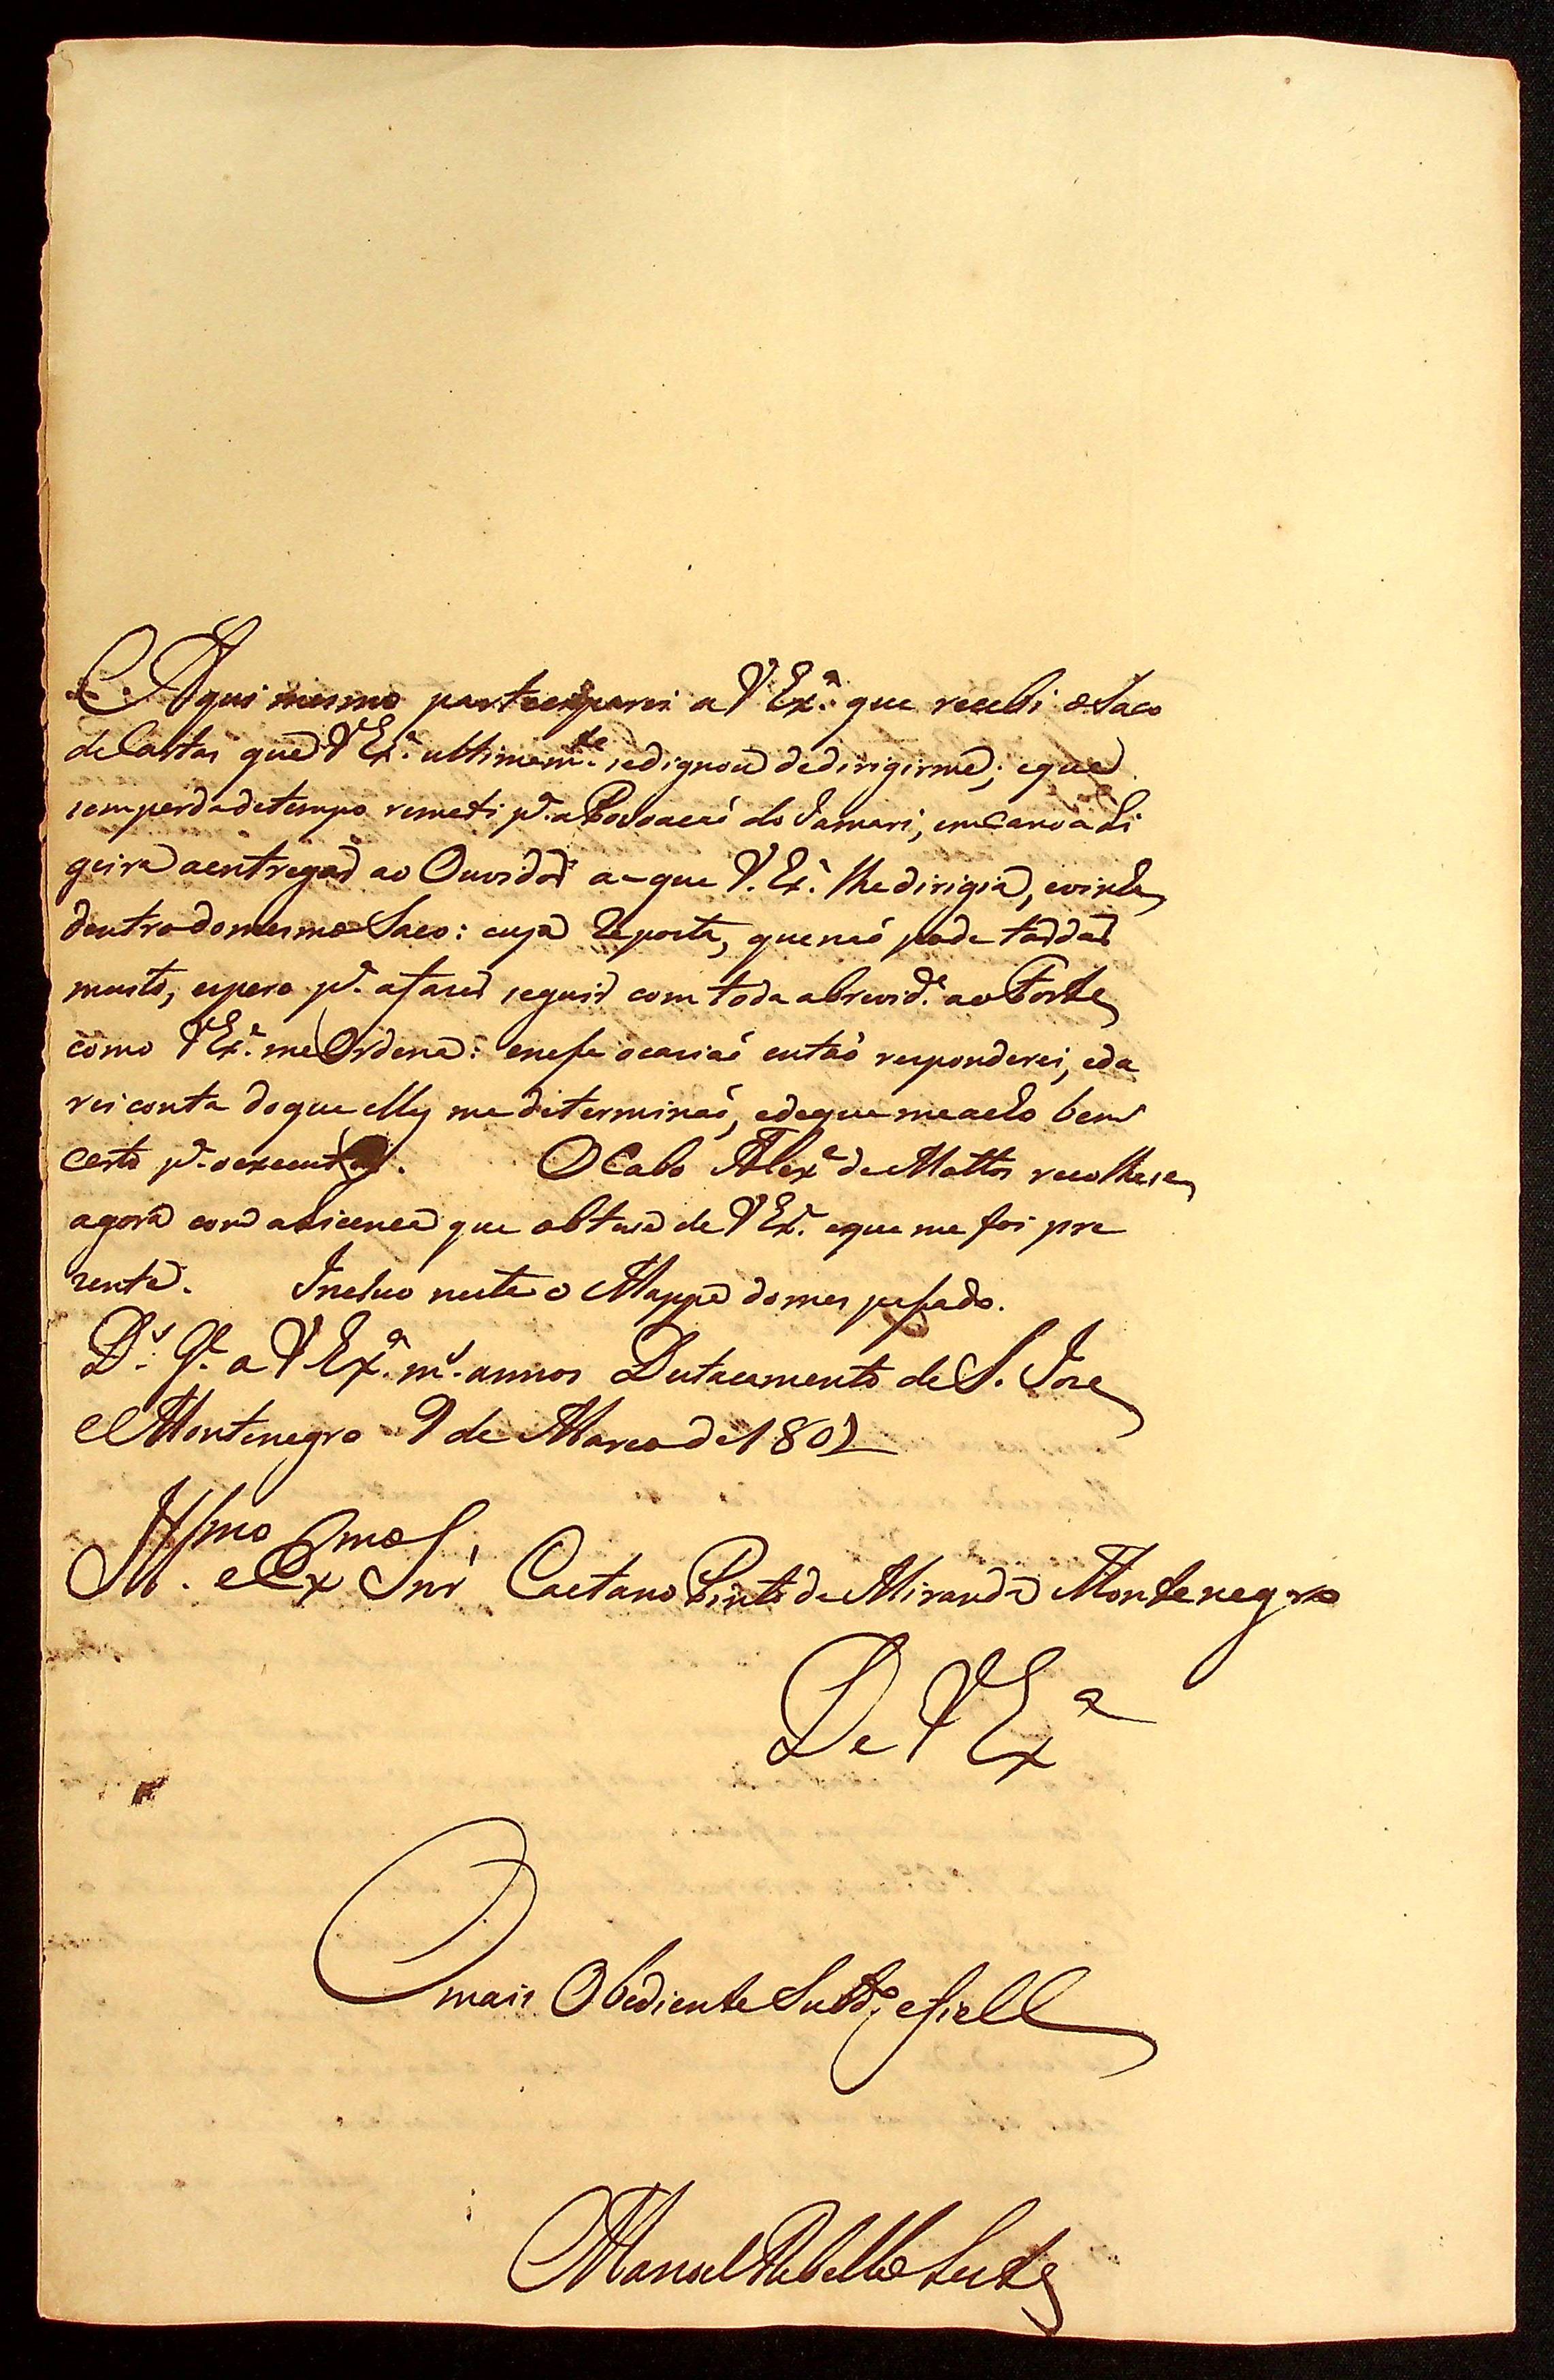 Aqui mesmo partecipei a V Ex.ª que recebi o Saco
de Cartas que V Ex.ª ultimam.te se dignou de dirigirme; e que
sem perda de tempo remeti p.ª a Povoacaõ do Jamari, em Canoa Li
geira a entregar ao Ouvidor a que V. Ex.ª lhe dirigia, e vinha
dentro do mesmo Saco: cuja Reposta, que naõ pode tardar
muito, espero p.ª a fazer seguir com toda a brevid.e ao Forte
como V Ex.ª me Ordena: e nesa ocasiaõ entaõ responderei, e da
rei conta do que elles me determinaõ, e de que me acho bem
certo p.ª o executar. O Cabo Alex.e de Mattos recolhese
agora com a licenca que obteve de V Ex.ª e que me foi pre
zente. Incluo neste o Mappa do mes pasado.
D.s G.e a V Ex.ª m.s annos Destacamento de S. Joze
e Montenegro 9 de Marco de 1802
Ill.mo e Ex.mo Snr' Caetano Pinto de Miranda Montenegro
De V Ex.ª
O mais Obediente Subd.º e fiell
Manoel Rebello Leite